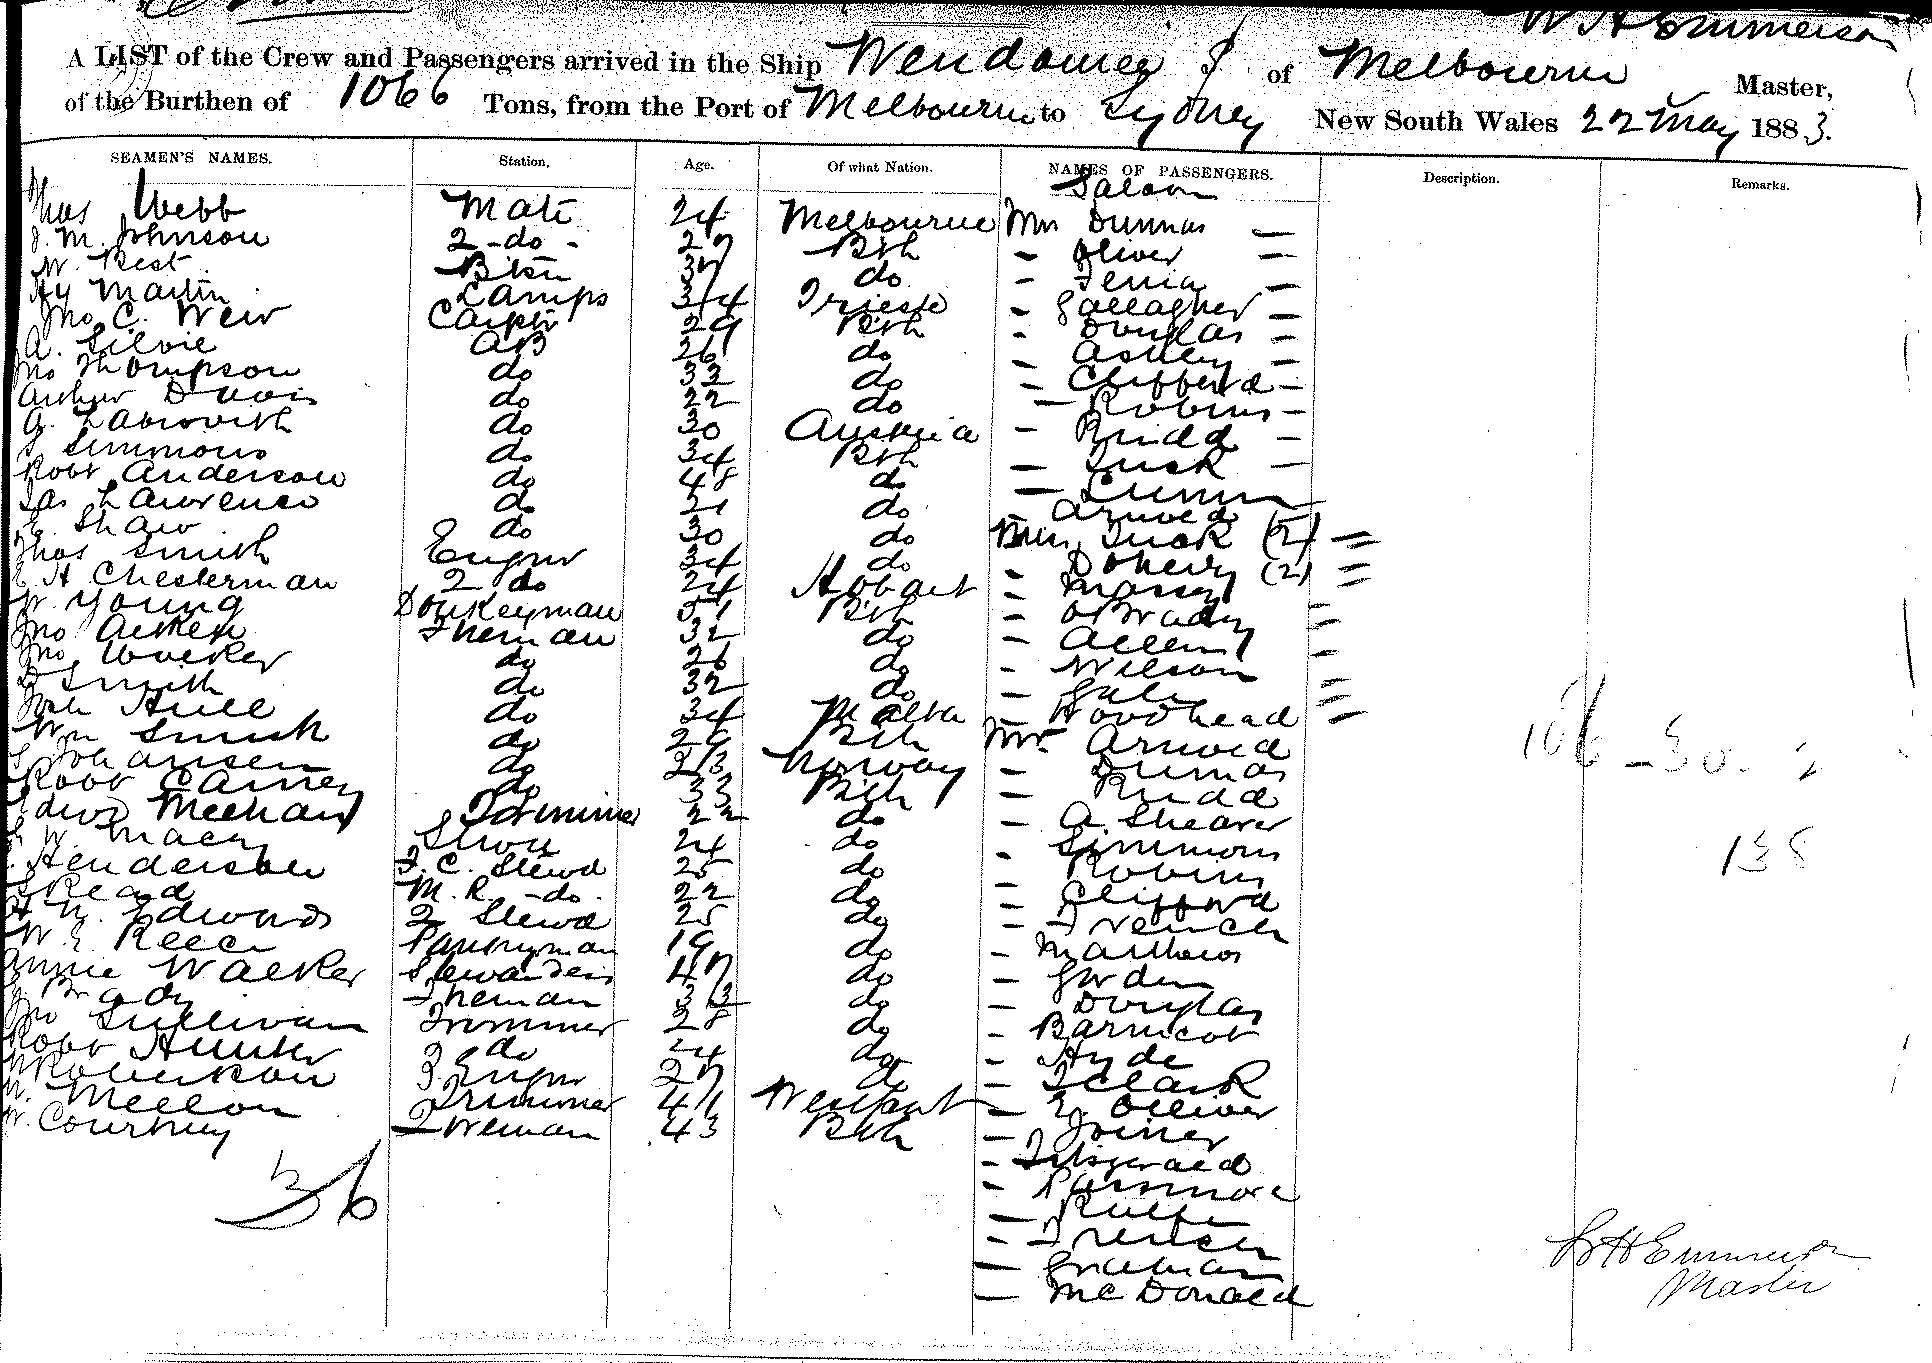 W H Emmerson
A LIST of the Crew and Passengers arrived in the Ship Wendouree S of Melbourne Master,
of the Burthen of 1066 Tons, from the Port of Melbourne to Sydney New South Wales 22 May 1883.
SEAMEN'S NAMES. Station, Age. Of what Nation. NAMES OF PASSENGERS. Description. Remarks.
Saloon
Thos Webb Mate 24 Melbourne Mrs Dumas —
J. M. Johnson 2 - do - 27 Bth - Oliver —
W. Best 37 do -
Hy Martin Lamps 34 Trieste - Gallagher —
Jno C. Weir Carptr 29 Bth - Douglas —
A. Silvie AB 26 do - Ashley —
Jno Thompson do 33 do - Clifford —
Arthur Davis do 22 do - Robins —
G. do 30 Austria - Rudd —
S Simmons do 34 Bth - Tuck —
Robt Anderson do 48 do -
Jas Lawrence do 21 do - Arnold
E. Shaw do 30 do Miss Tuck (2) =
Thos Smith Enginr 34 do - Doherty (2) =
E. H Chesterman 2 do 24 Hobart - Massey
W. Young Donkeyman 51 Bth - O'Brady =
Jno Aitken Fireman 32 do - Allen =
Jno Walker do 26 do - Wilson
D Smith do 32 do - Gale =
Joh Hull do 34 Malta - Woodhead =
Wm Smith do 26 Bth Mr Arnold
S Johansen do 23 Norway - Dumas
Robt Carney do 33 Bth - Rudd
Edwd Meehan Trimmer 22 do - A. Shearer
W. Macey Stwd 24 do - Simmons
Henderson F. C. Stewd 25 do - Robins
S Read M. R - do. 22 do - Clifford
H N. Edwards 2 Stewd 25 do - French
W. E Reece Pantryman 19 do - Matthews
Annie Walker Stewardess 47 do - Gordon
J. Brady Fireman 33 do - Douglas
Jno Sullivan Trimmer 28 do - Barnicot
Robt Hunter do 24 do - Hyde
Robertson 3 Enginr 27 do - J Clark
Mellon Trimmer 41 - E. Olliver
W. Courtney Fireman 43 Bth - Joiner
- Fitzgerald
36 - Passmore
-
- French
- Graham
- McDonald
106 - 30.
138
W H Emmerson
Master